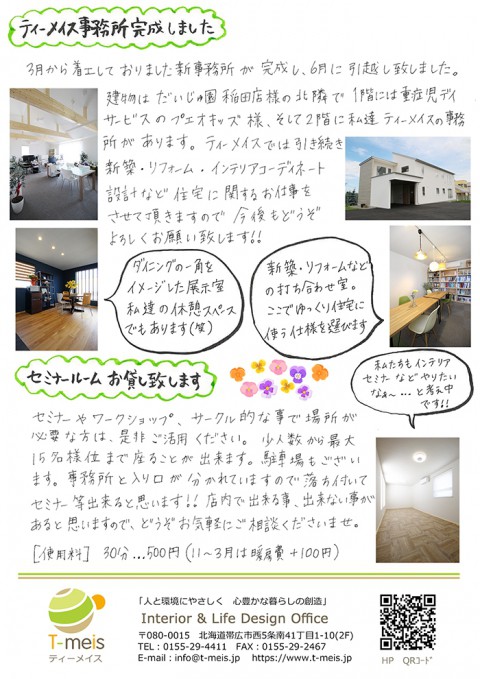 ティーメイス事務所完成しました
3月から着工しておりました新事務所が完成し、6月に引越し致しました。
建物はだいじゅ園稲田店様の北隣で1階には重症児デイ
サービスのプエオキッズ様、そして2階に私達ティーメイスの事務
所があります。ティーメイスでは引き続き
新築・リフォーム・インテリアコーディネート
設計など住宅に関するお仕事を
させて頂きますので今後もどうぞ
よろしくお願い致します!!
ダイニングの一角を
イメージした展示室
私達の休憩スペース
でもあります(笑)
新築・リフォームなど
の打ち合わせ室。
ここでゆっくり住宅に
使う仕様を選びます
セミナールームお貸し致します
私たちもインテリア
セミナーなどやりたい
なぁ〜…と考え中
です!!
セミナーやワークショップ、サークル的な事で場所が
必要な方は、是非ご活用ください。少人数から最大
15名様位まで座ることが出来ます。駐車場もござい
ます。事務所と入り口が分かれていますので落ち付いて
セミナー等出来ると思います!!店内で出来る事、出来ない事が
あると思いますので、どうぞお気軽にご相談くださいませ。
[使用料] 30分…500円(11~3月は暖房費+100円)
T-meis
ティーメイス
「人と環境にやさしく 心豊かな暮らしの創造」
Interior & Life Design Office
〒080-0015 北海道帯広市西5条南41丁目1-10(2F)
TEL：0155-29-4411 FAX：0155-29-2467
E-mail：info@t-meis.jp https://www.t-meis.jp
HP QRｺｰﾄﾞ